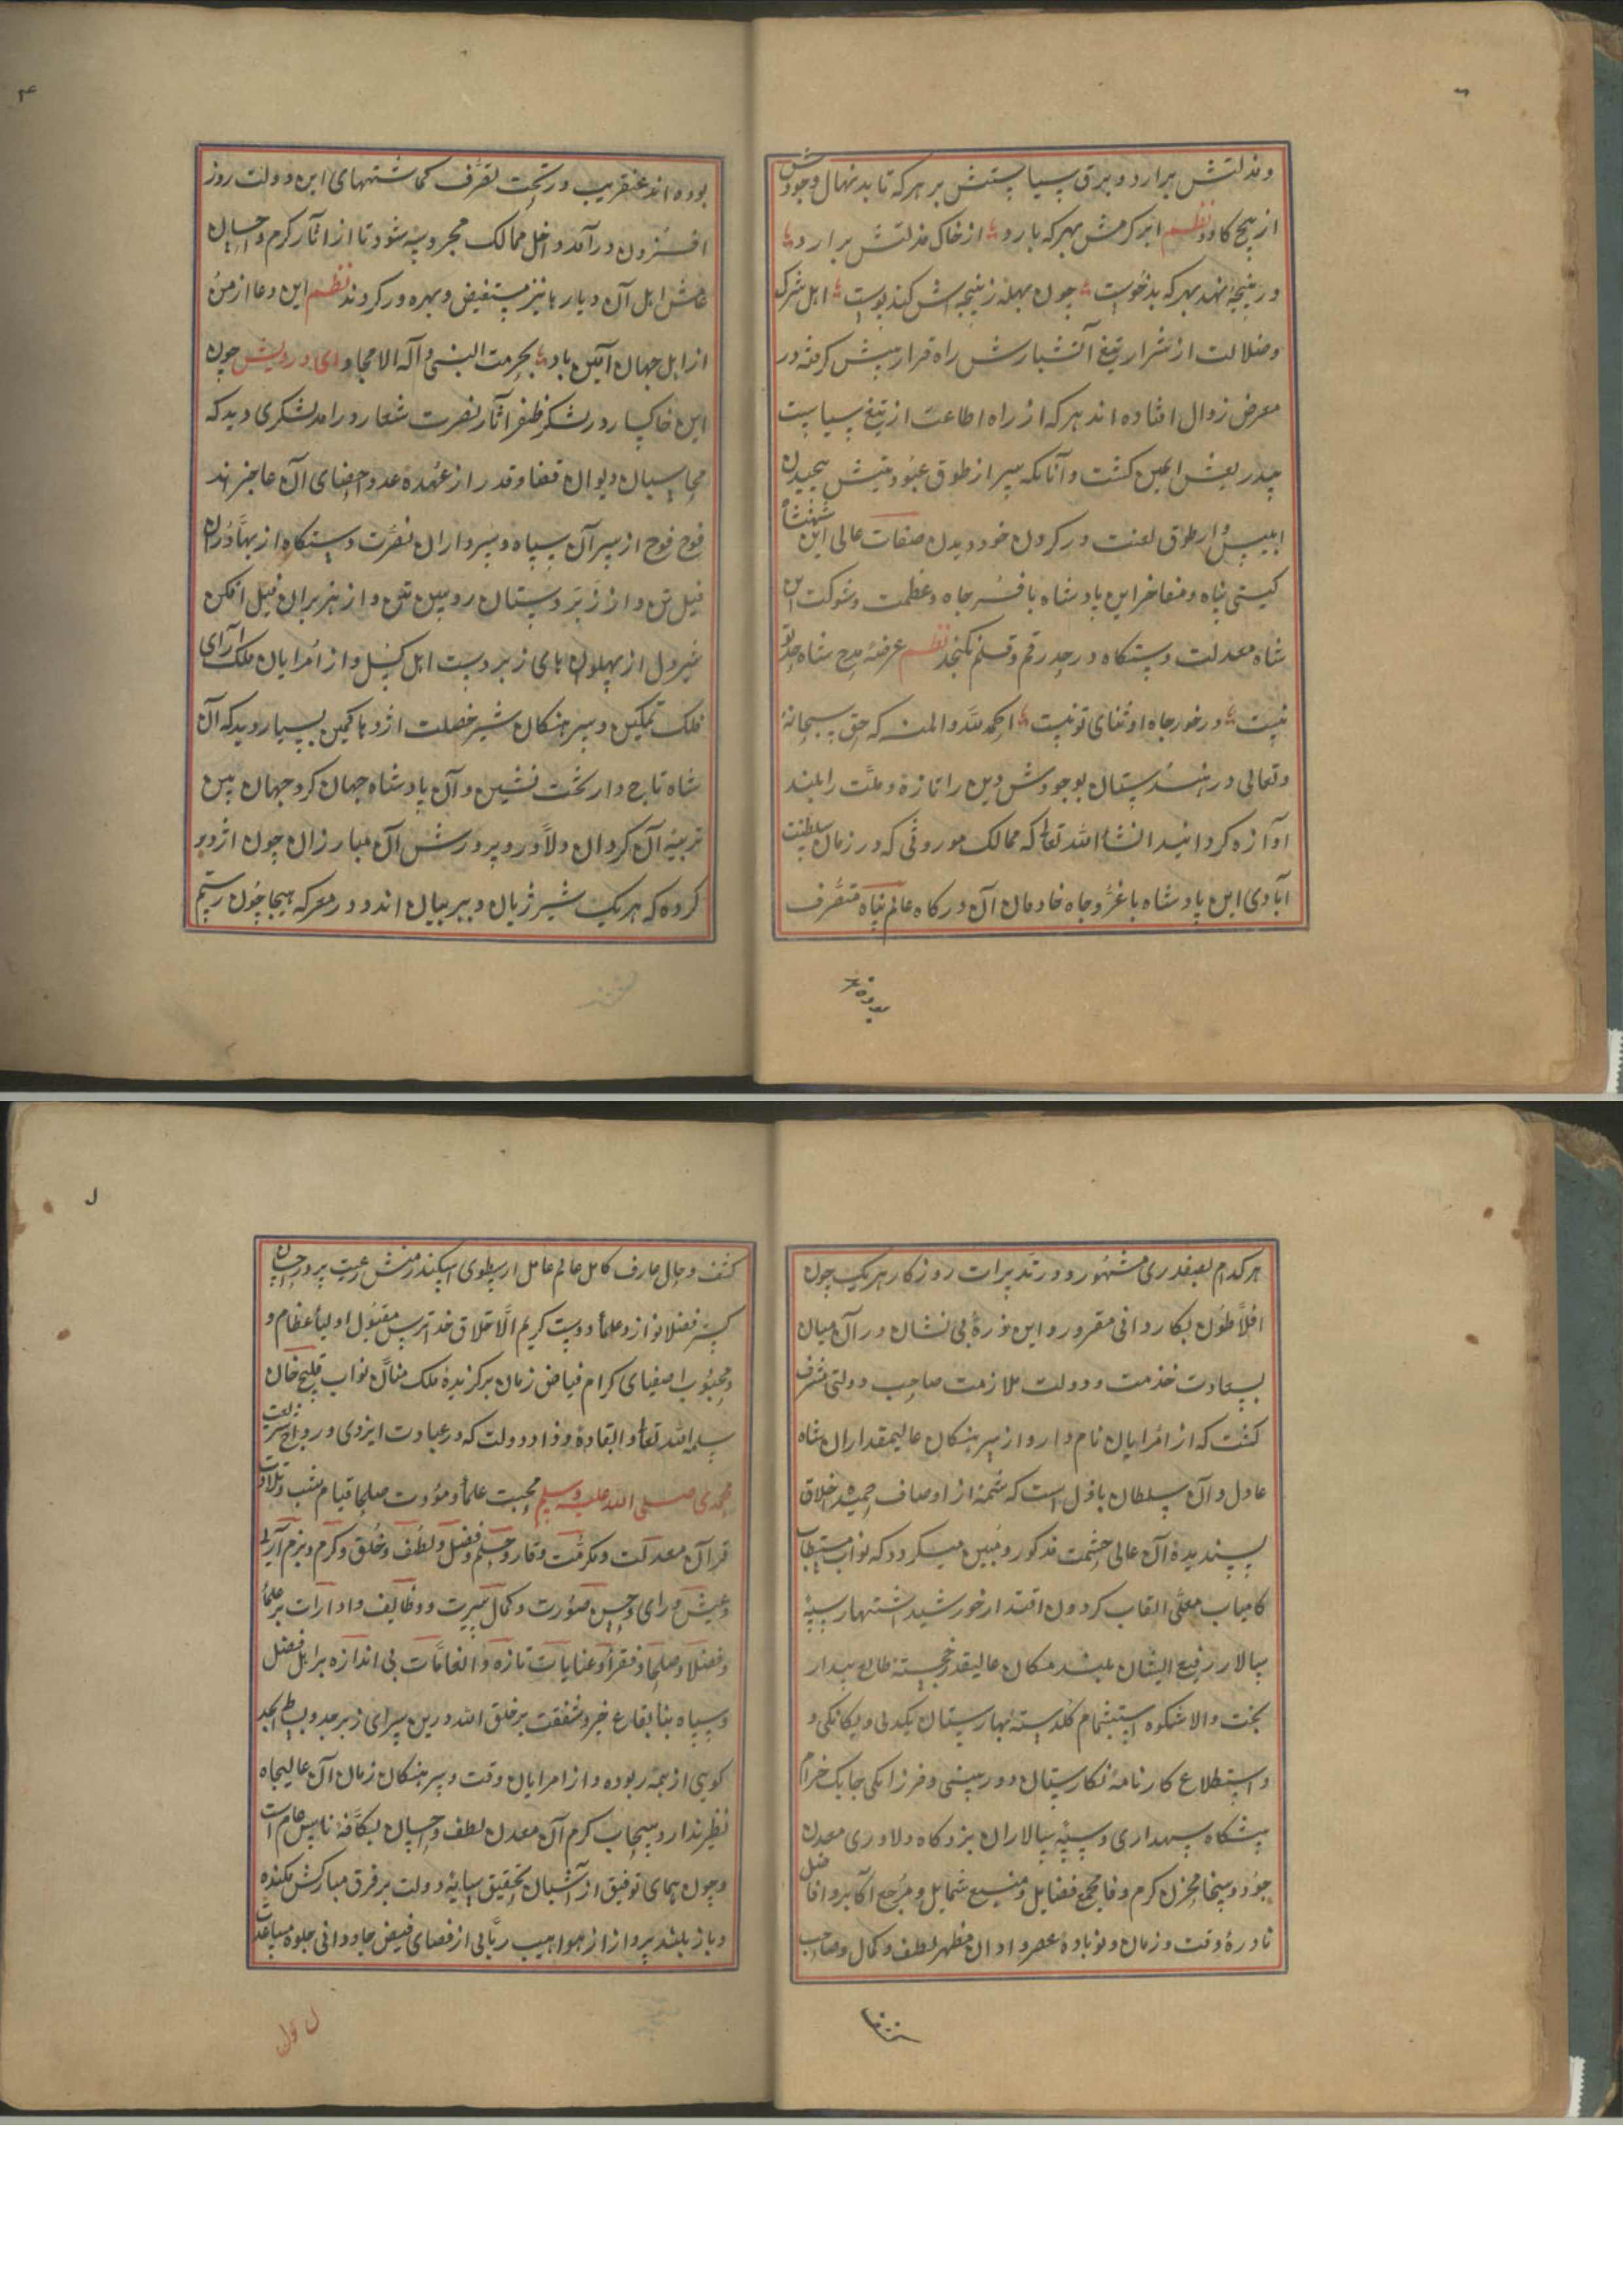 و مذلتش برارد و برق سیاستش بر هر که تابد نهال وجودش
از بیخ کاود نظم ابر کرمش بهر که بارد از خاک مذلتش برارد
در پنجه نهد بهر که بدخوست چون بهله ز پنجه اش کند پوست اهل شرک
و ضلالت از شرار تیغ آتشبارش راه فرار پیش گرفته در
معرض زوال افتاده اند هر که از راه اطاعت از تیغ سیاست
بیدریغش ایمن گشت و آنانکه سر از طوق عبودیتش پیچیدن
ابلیس وار طوق لعنت در گردن خود دیدن صفات عالی این شهنشاه
گیتی پناه و مفاخر این پادشاه با فر و جاه و عظمت و شوکت این
شاه معدلت دستگاه در حد رقم و قلم نگنجد نظم عرضهٔ مدح شاه حد تو
نیست در خور جاه او ثنای تو نیست الحمد لله و المنه که حق سبحانهٔ
و تعالی در هندستان بوجودش دین را تازه و ملت را بلند
آوازه گردانید انشاء الله تعا که ممالک موروثی که در زمان سلطنت
آبادی این پادشاه با عز و جاه خادمان آن درگاه عالم پناه متصرف
بوده اند
بوده اند عنقریب در تحت تصرف گماشتهای این دولت روز
افزون درآمد و اخل ممالک محروسه شود تا از اثار کرم و احسان
عامش اهل آن دیار ها نیز مستفیض و بهره ور گردند نظم این دعا از من
از اهل جهان آمین باد بحرمت النبی و آله الامجاد ای درویش چون
این خاکسار در لشکر ظفر اثار نصرت شعار درامد لشکری دید که
محاسبان دیوان قضا و قدر از عهدهٔ عد و احصای آن عاجزند
فوج فوج از سر آن سپاه و سرداران نصرت دستگاه از بهادران
فیل تن و از زبر دستان رویین تن و از هزبران فیل افکن
شیردل از پهلوان های زبردست اهل کسل و از امرایان ملک آرای
فلک تمکین و سرهنگان شیر خصلت اژدها کمین بسیار دید که آن
شاه تاج دار تخت نشین و آن پادشاه جهان گرد جهان بین
تربیهٔ آن گردان دلاور و پرورش آن مبارزان چون اژدر
کرده که هر یک شیر ژیان و ببر بیان اند و در معرکه هیجا چون رستم
هر کدام بصفدری مشهور و در تدبیرات روزگار هر یک چون
افلاطون بکاردانی مقرور و این ذرهٔ بی نشان در آن میان
بسعادت خدمت و دولت ملازمت صاحب دولتی مشرف
گشت که از امرایان نام دار و از سرهنگان عالیمقداران شاه
عادل و آن سلطان باذل است که شمهٔ از اوصاف حمیده اخلاق
پسندیدهٔ آن عالی حشمت مذکور و مبین میگردد که نواب مستطاب
کامیاب معلی القاب گردون اقتدار خورشید اشتهار سپه
سالار رفیع الشان بلند مکان عالیقدر خجسته طالع بیدار
بخت والا شکوه استشمام گلدستهٔ بهارستان یکدلی و یگانگی و
و استطلاع کارنامهٔ نگارستان دوربینی و فرزانگی چابک خرام
پیشگاه سپهداری و سپه سالاران بزرگاه دلاوری معدن
جود و سخا مخزن کرم و فا مجمع فضایل و منبع شمایل و مرجع اکابر و افاضل
نادرهٔ وقت و زمان و نوبادهٔ عصر و اوان مظهر لطف و کمال و صاحب
کشف و حال عارف کامل عالم عامل ارسطوی اسکندر منش رعیت پرور احسان
گستر فضلا نواز و علما دوست کریم الاخلاق خدا ترس مقبول اولیاء عظام و
و محبوب اصفیای کرام فیاض زمان برگزیدهٔ ملک منان نواب قلیچ خان
سلمه الله تعا و ابقاه و زاد دولت که در عبادت ایزدی و رواج شریعت
محمدی صلی الله علیه وسلم محبت علما و مودت صلحا قیام شب و تلاوت
قرآن معدلت و مکرمت وقار و حلم و فضل و لطف و خلق و کرم و بزم آرای
و عیش و رای و حسن صورت و کمال سیرت و وظایف و ادارات بر علما
و فضلا و صلحا و فقرا و عنایات تازه و انعامات بی اندازه بر اهل فضل
و سپاه بنا بقاع خیر و شفقت بر خلق الله درین سرای زبرجد و بساط
گوی از همه ربوده و از امرایان وقت و سرهنگان زمان آن عالیجاه
نظیر ندارد و سحاب کرم آن معدن لطف و احسان بکافهٔ ناس عام است
و چون همای توفیق از آشیان تحقیق سایهٔ دولت بر فرق مبارکش فکنده
و باز بلند پرواز از مواهب ربانی از فضای فیض جاودانی جلوه